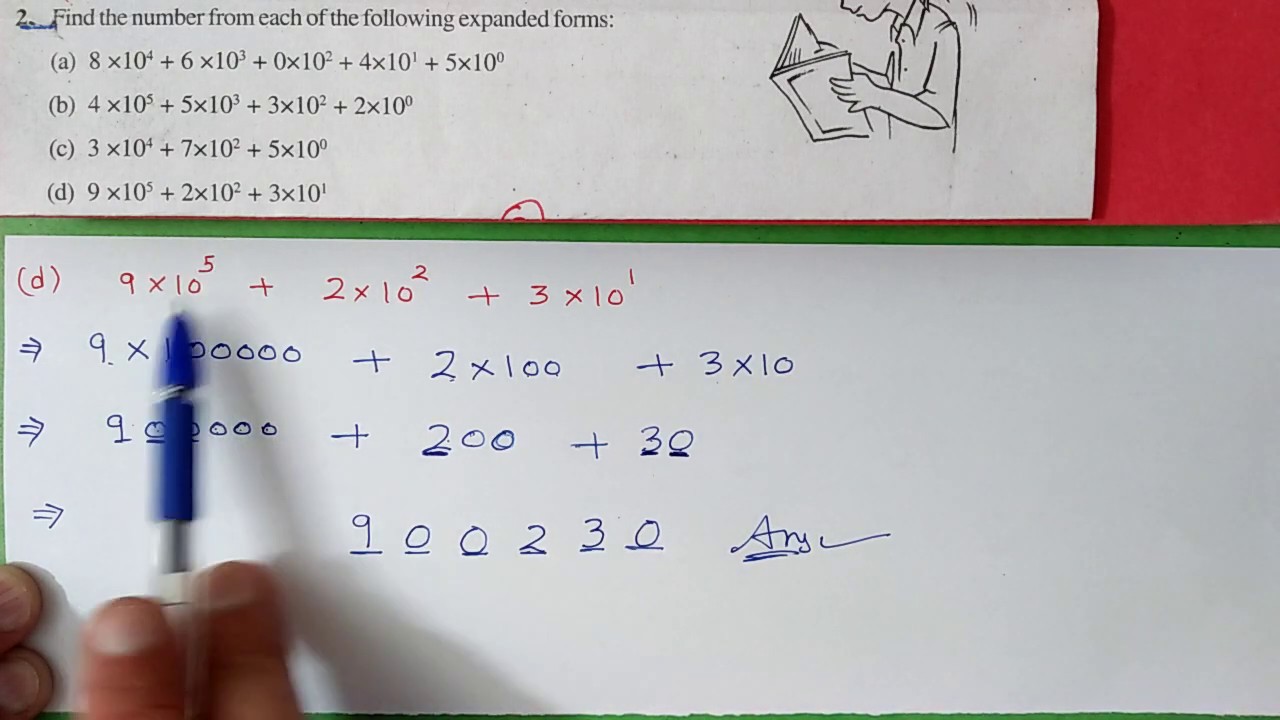 2. Find the number from each of the following expanded forms:
(a) 8 ×10⁴ + 6 ×10³ + 0×10² + 4×10¹ + 5×10⁰
(b) 4 ×10⁵ + 5×10³ + 3×10² + 2×10⁰
(c) 3 ×10⁴ + 7×10² + 5×10⁰
(d) 9 ×10⁵ + 2×10² + 3×10¹
(d) 9 × 10⁵ + 2 × 10² + 3 × 10¹
⇒ 9 × 100000 + 2 × 100 + 3 × 10
⇒ 900000 + 200 + 30
⇒ 9 0 0 2 3 0 Ans